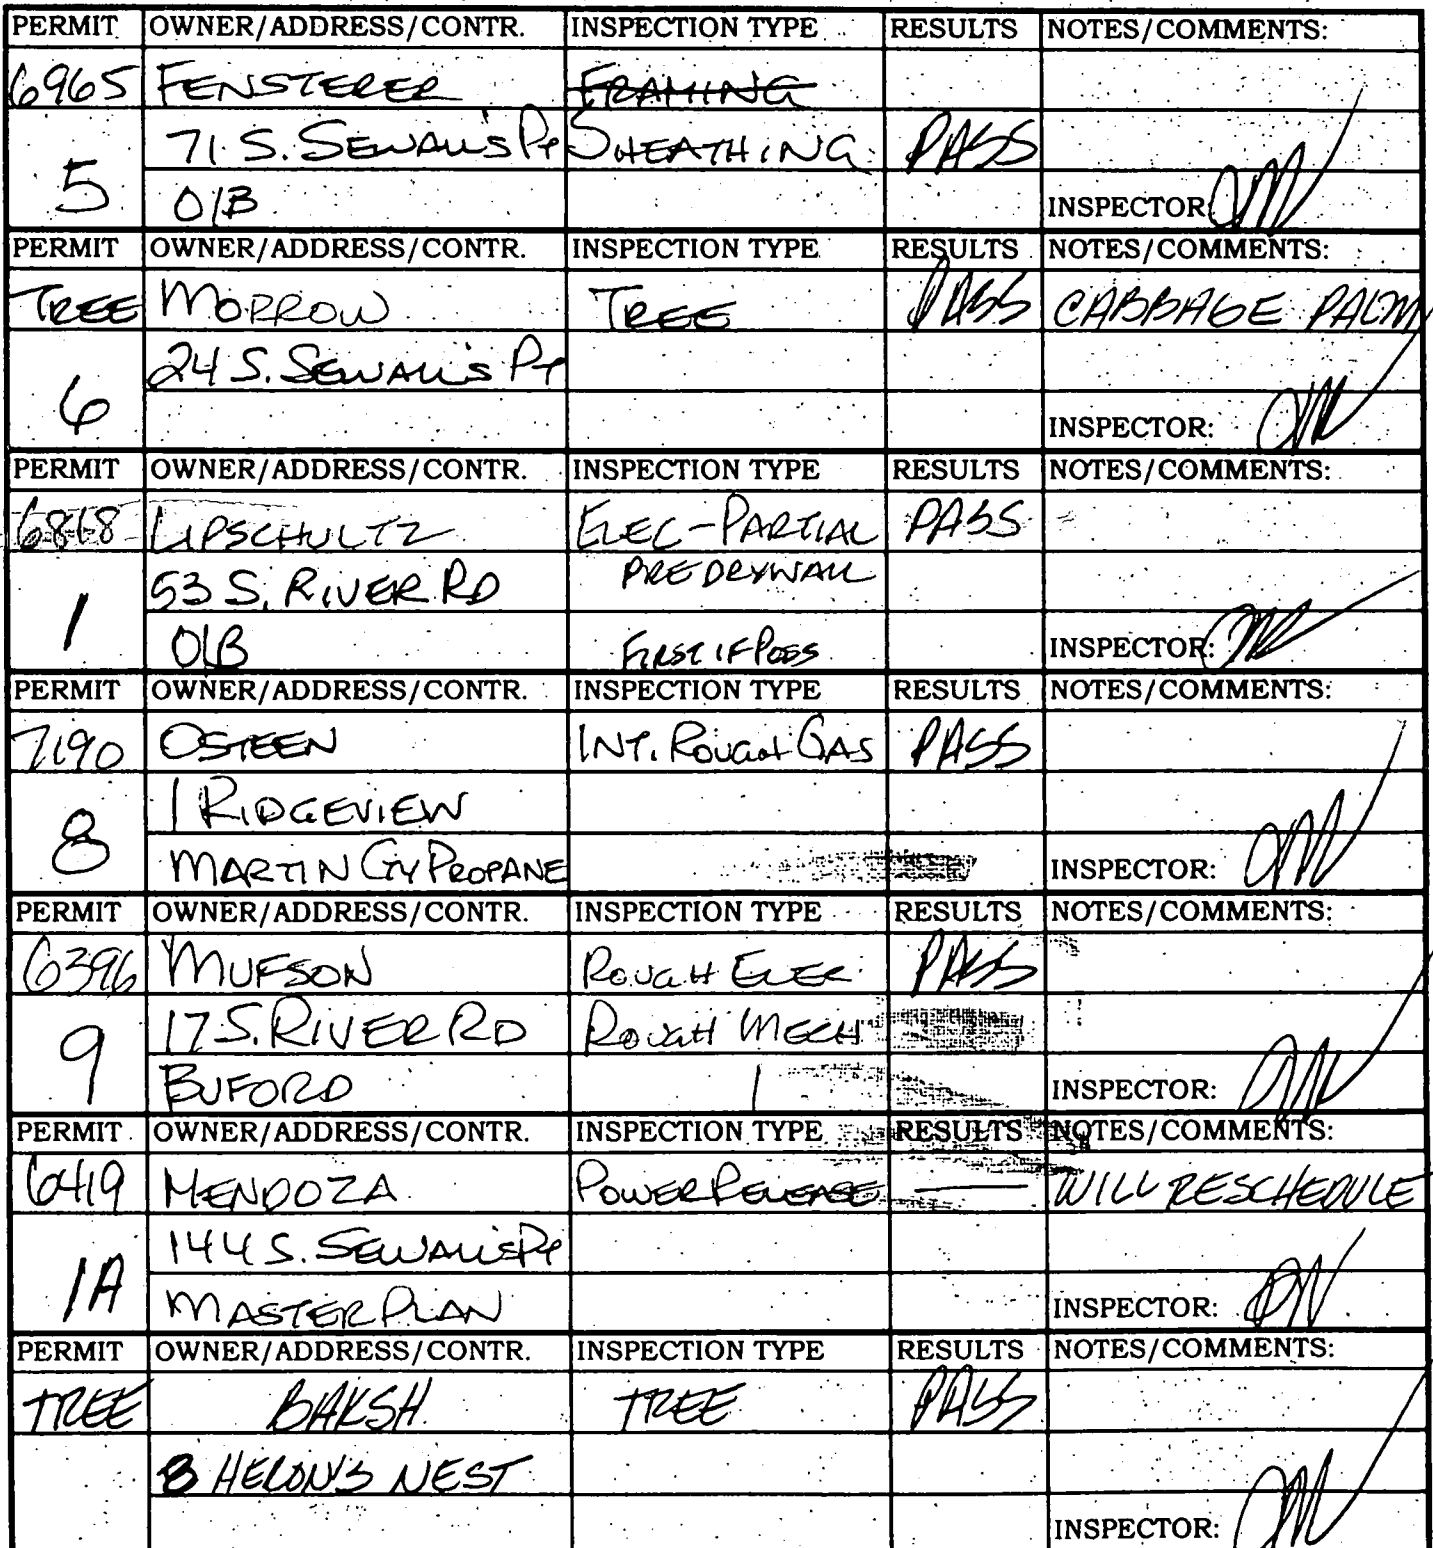 PERMIT OWNER/ADDRESS/CONTR. INSPECTION TYPE RESULTS NOTES/COMMENTS:
6965 FENSTERER FRAMING
71 S. SEWALL'S PT SHEATHING PASS
5 O/B INSPECTOR
PERMIT OWNER/ADDRESS/CONTR. INSPECTION TYPE RESULTS NOTES/COMMENTS:
TREE MORROW TREE PASS CABBAGE PALM
24 S. SEWALL'S PT
6 INSPECTOR:
PERMIT OWNER/ADDRESS/CONTR. INSPECTION TYPE RESULTS NOTES/COMMENTS:
6868 LIPSCHULTZ ELEC-PARTIAL PASS
53 S. RIVER RD PREDRYWALL
1 O/B FIRST IF POSS INSPECTOR:
PERMIT OWNER/ADDRESS/CONTR. INSPECTION TYPE RESULTS NOTES/COMMENTS:
7190 OSTEEN INT. ROUGH GAS PASS
1 RIDGEVIEW
8 MARTIN CTY PROPANE INSPECTOR:
PERMIT OWNER/ADDRESS/CONTR. INSPECTION TYPE RESULTS NOTES/COMMENTS:
6396 MUFSON ROUGH ELEC PASS
17 S. RIVER RD ROUGH MECH
9 BUFORD INSPECTOR:
PERMIT OWNER/ADDRESS/CONTR. INSPECTION TYPE RESULTS NOTES/COMMENTS:
6419 MENDOZA POWER RELEASE — WILL RESCHEDULE
144 S. SEWALL'S PT
1A MASTER PLAN INSPECTOR:
PERMIT OWNER/ADDRESS/CONTR. INSPECTION TYPE RESULTS NOTES/COMMENTS:
TREE BAKSH TREE PASS
8 HERON'S NEST
INSPECTOR: